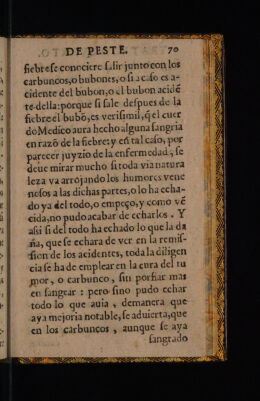 DE PESTE. 70
fiebre se conociere salir junto con los
carbuncos, o bubones, o si a caso es a-
cidente del bubon, o el bubon acidē
te della: porque si sale despues de la
fiebre el bubō, es verisimil, q̃ el cuer
do Medico aura hecho alguna sangria
en razō de la fiebre: y en tal caso, por
parecer juyzio de la enfermedad, se
deue mirar mucho si toda via natura
leza va arrojando los humores vene
nosos a las dichas partes, o lo ha echa-
do ya del todo, o empeço, y como vē
cida, no pudo acabar de echarlos. Y
assi si del todo ha echado lo que la da
ña, que se echara de ver en la remis-
sion de los acidentes, toda la diligen
cia se ha de emplear en la cura del tu
mor, o carbunco, sin porfiar mas
en sangrar: pero sino pudo echar
todo lo que auia, demanera que
aya mejoria notable, se aduierta, que
en los carbuncos, aunque se aya
sangrado